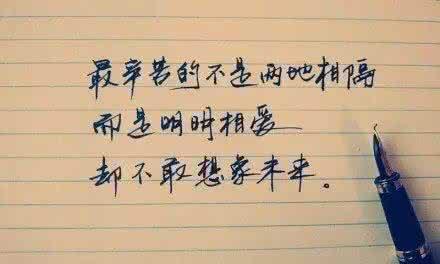 最辛苦的不是两地相隔
而是明明相爱
却不敢想象未来。